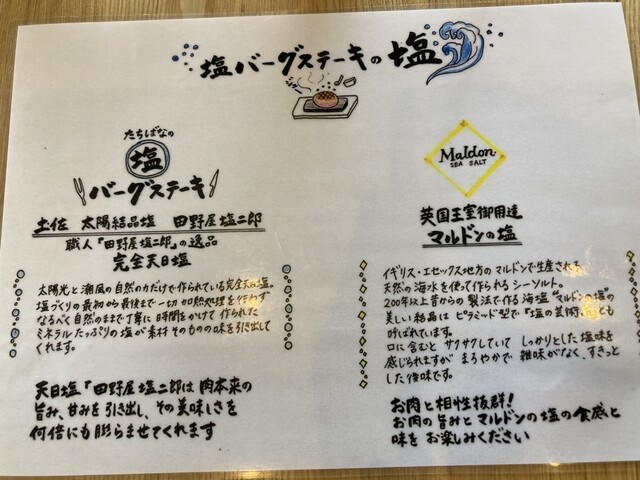 塩バーグステーキの塩
たちばなの
塩
バーグステーキ
土佐 太陽結晶塩 田野屋塩二郎
職人『田野屋塩二郎』の逸品
完全天日塩
太陽光と潮風の自然の力だけで作られている完全天日塩。
塩づくりの最初から最後まで一切加熱処理を行わず
なるべく自然のままで丁寧に時間をかけて作られた
ミネラルたっぷりの塩が素材そのものの味を引き出して
くれます。
天日塩『田野屋塩二郎は肉本来の
旨み、甘みを引き出し、その美味しさを
何倍にも膨らませてくれます
Maldon
SEA SALT
英国王室御用達
マルドンの塩
イギリス・エセックス地方のマルドンで生産される
天然の海水を使って作られるシーソルト。
200年以上昔からの製法で作る海塩"マルドンの塩"の
美しい結晶はピラミッド型で『塩の芸術』とも
呼ばれています。
口に含むとサクサクしていてしっかりとした塩味を
感じられますがまろやかで雑味がなく、すきっと
した後味です。
お肉と相性抜群!
お肉の旨みとマルドンの塩の食感と
味をお楽しみください